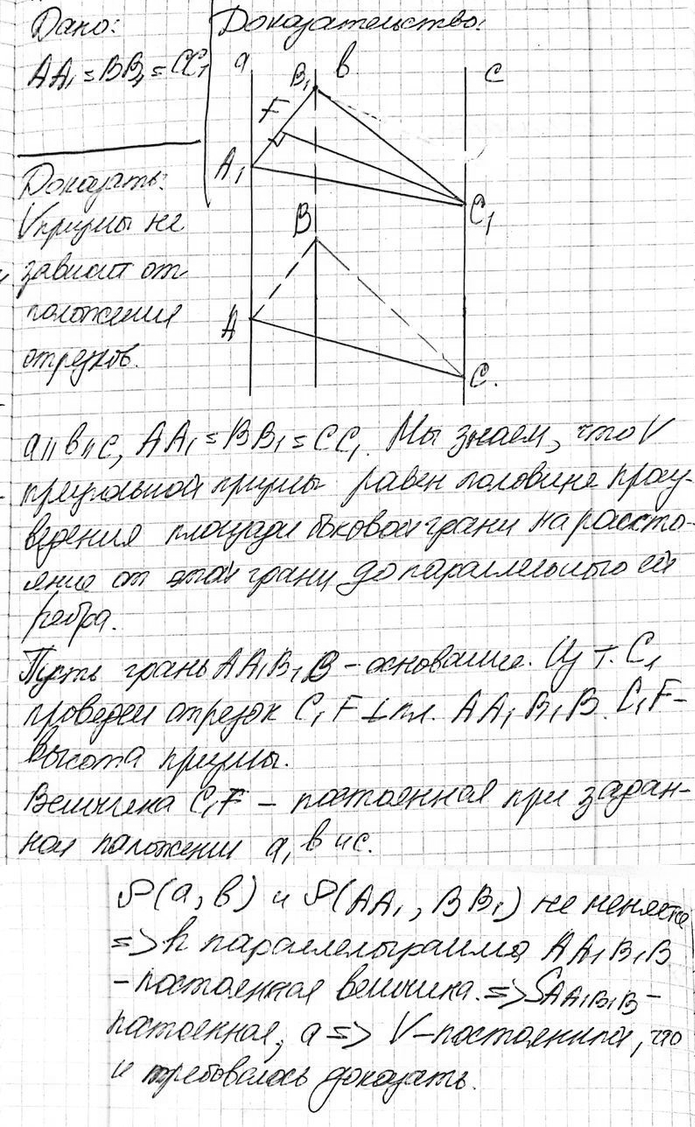 Дано:
AA₁ = BB₁ = CC₁
Доказать:
V призмы не
зависит от
положения
отрезков.
Доказательство:
a
B₁
в
c
F
A₁
C₁
B
A
C.
a॥в॥c, AA₁ = BB₁ = CC₁. Мы знаем, что V
треугольной призмы равен половине произ-
ведения площади боковой грани на рассто-
яние от этой грани до параллельного ей
ребра.
Пусть грань AA₁B₁B – основание. Из т. C₁
проведем отрезок C₁F ⊥ пл. AA₁B₁B. C₁F –
высота призмы.
Величина C₁F – постоянная при задан-
ном положении a, в и c.
ρ(a, в) и ρ(AA₁, BB₁) не меняется
=> h параллелограмма AA₁B₁B
– постоянная величина. => S AA₁B₁B –
постоянная, а => V – постоянная, что
и требовалось доказать.